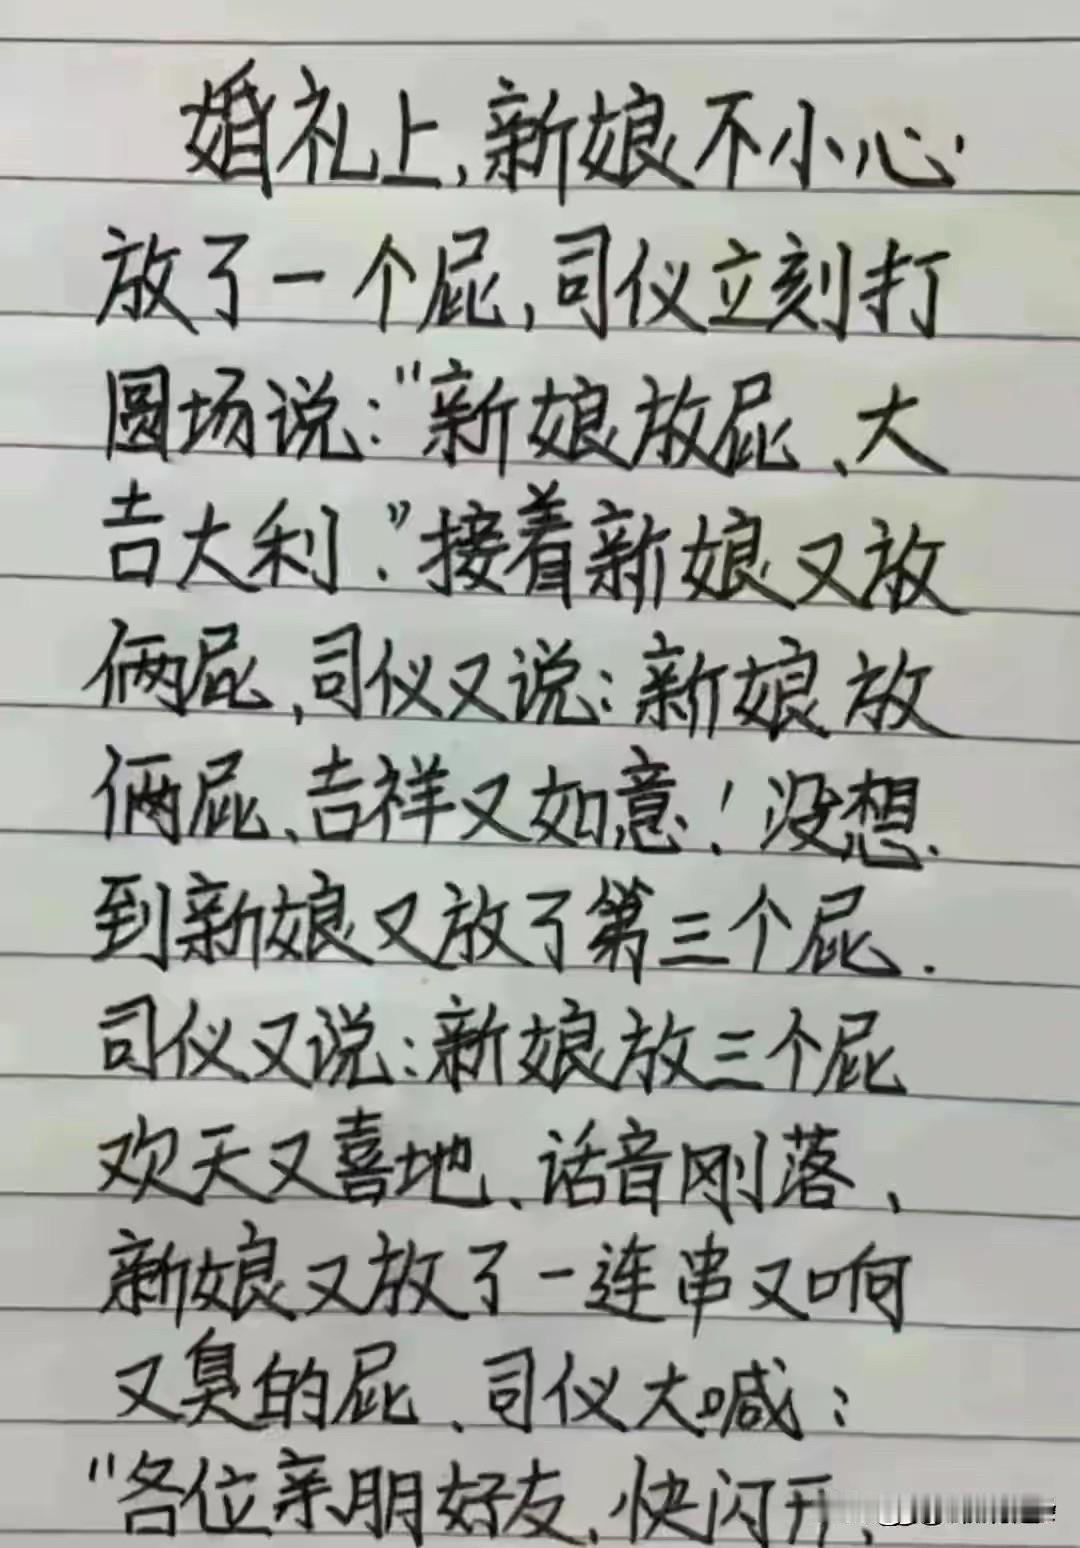 婚礼上,新娘不小心
放了一个屁,司仪立刻打
圆场说:"新娘放屁、大
吉大利."接着新娘又放
俩屁,司仪又说:新娘放
俩屁、吉祥又如意!没想
到新娘又放了第三个屁.
司仪又说:新娘放三个屁
欢天又喜地、话音刚落、
新娘又放了一连串又响
又臭的屁、司仪大喊:
"各位亲朋好友,快闪开,